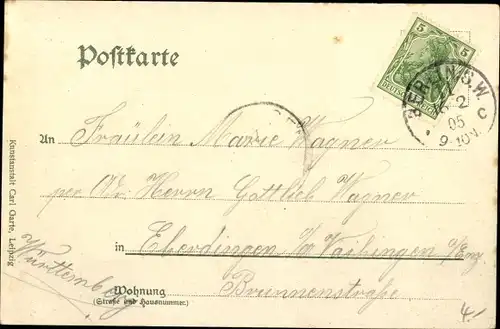 Postkarte
5
DEUTSCHES REICH
BERLIN S.W.
2
05
9-10 N.
C
An Fräulein Marie Wagner
per Adr. Herrn Gottlieb Wagner
in Eberdingen Vaihingen a/Enz
Württemberg
Wohnung Brunnenstraße
(Straße und Hausnummer.)
Kunstanstalt Carl Garte, Leipzig
4.-